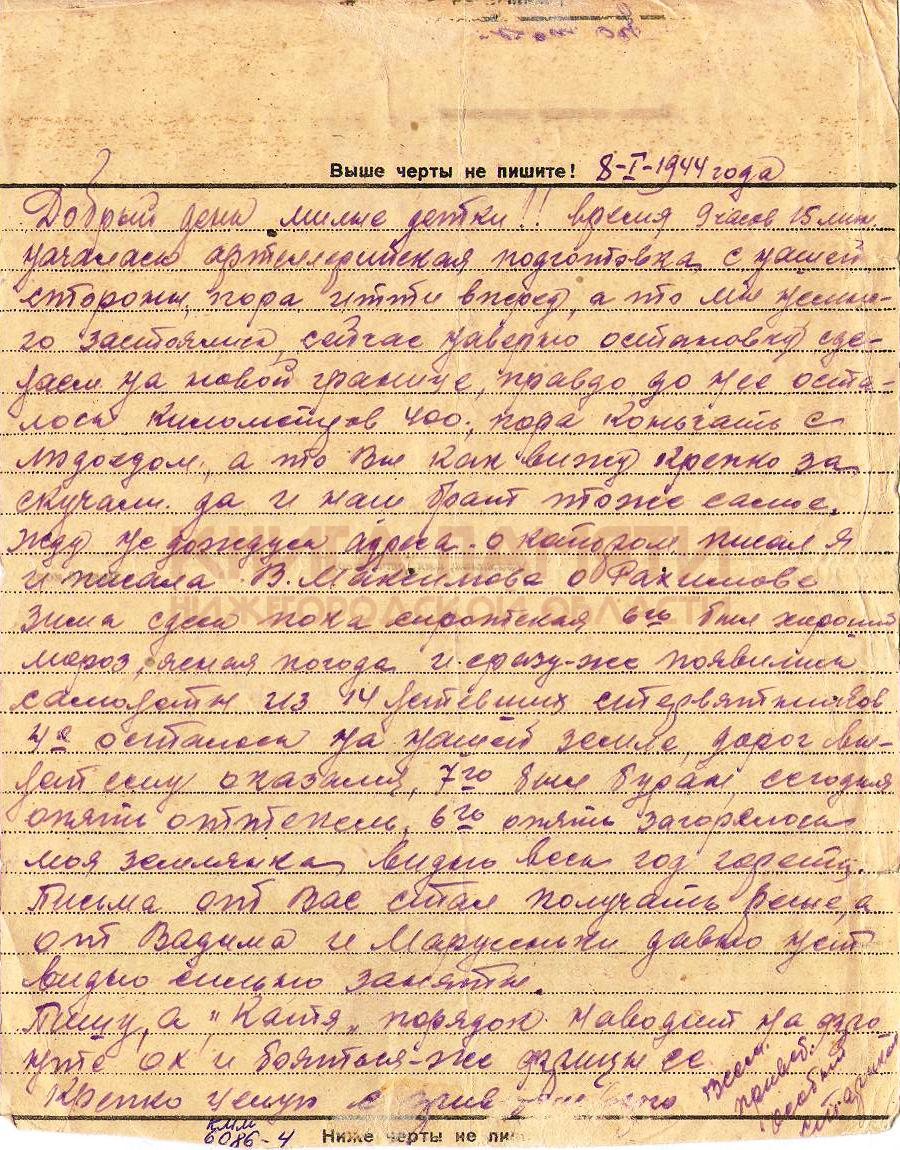 Выше черты не пишите! 8-I-1944 года
Добрый день милые детки!! время 9 часов 15 мин.
началась артиллерийская подготовка с нашей
стороны, пора итти вперед, а то мы немно-
го застоялись, сейчас наверно остановку сде-
лаем на новой границе, правда до нее оста-
лось километров 400, пора кончать с
людоедом, а то Вы как вижу крепко за
скучали да и наш брат тоже самое.
жду не дождусь адреса о котором писал я
и писала В. Максимова о Рахимове
Зима сдесь пока сиротская 6го был хороший
мороз, ясная погода и сразу-же появились
самолеты из 14 летевших стервятников
4е осталось на нашей земле, дорог вы-
лет ему оказался, 7го был буран сегодня
опять оттепель, 6го опять загорелась
моя землянка, видно весь год гореть.
Письма от Вас стал получать Веше, а
от Вадима и Марусеньки давно нет
видно сильно заняты.
Пишу, а "Катя" порядок наводит на
уже ох и бояться-же фрицы ее
Крепко целую
Всем
привет.
особый
КММ
6086-4
Ниже черты не пи
КНИГА ПАМЯТИ
НИЖЕГОРОДСКОЙ ОБЛАСТИ